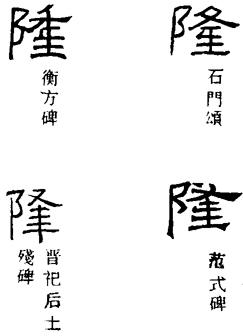 隆
衡方碑
隆
石門頌
隆
晉祀后土
殘碑
隆
范式碑